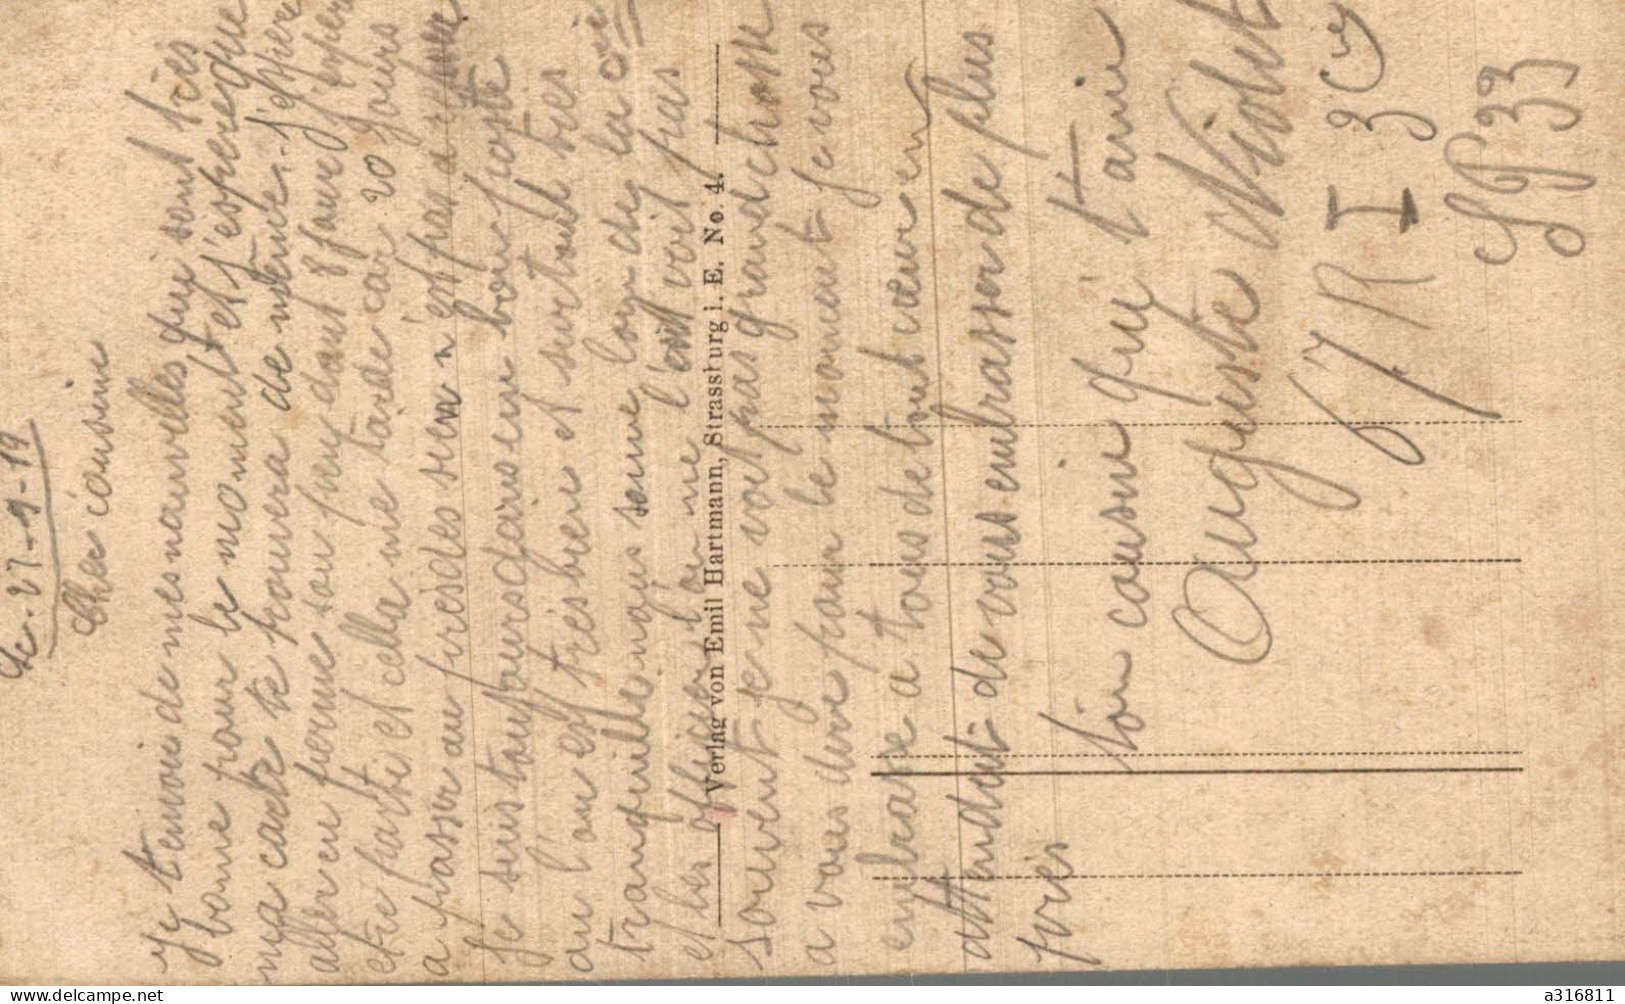 Le. 27-9-19
Cher cousine
Je tenvoie de mes nouvelles qui sont très
bonne pour le moment et j'espereque
ma carte te trouvera de même. J'espère
aller en perme son peu dant 8 jours j'esper
etre parti et cella me tarde car 20 jours
a passer au près des sien n'est pas a
Je suis toujours gaire en bon poste
au l'on est très bien et surtout très
tranquille nous some loin de la
et les officier l'on ne l'est voit pas
souvent je ne voit pas grand chose
a vous dire pour le moment Je vous
embrasse a tous de tout cœur en
attendant de vous embrasser de plus
près
Ton cousin qui t'aime
Auguste Niolet
57 R I 3 Cie
SP 33
Verlag von Emil Hartmann, Strassburg i. E. No. 4.
a316811